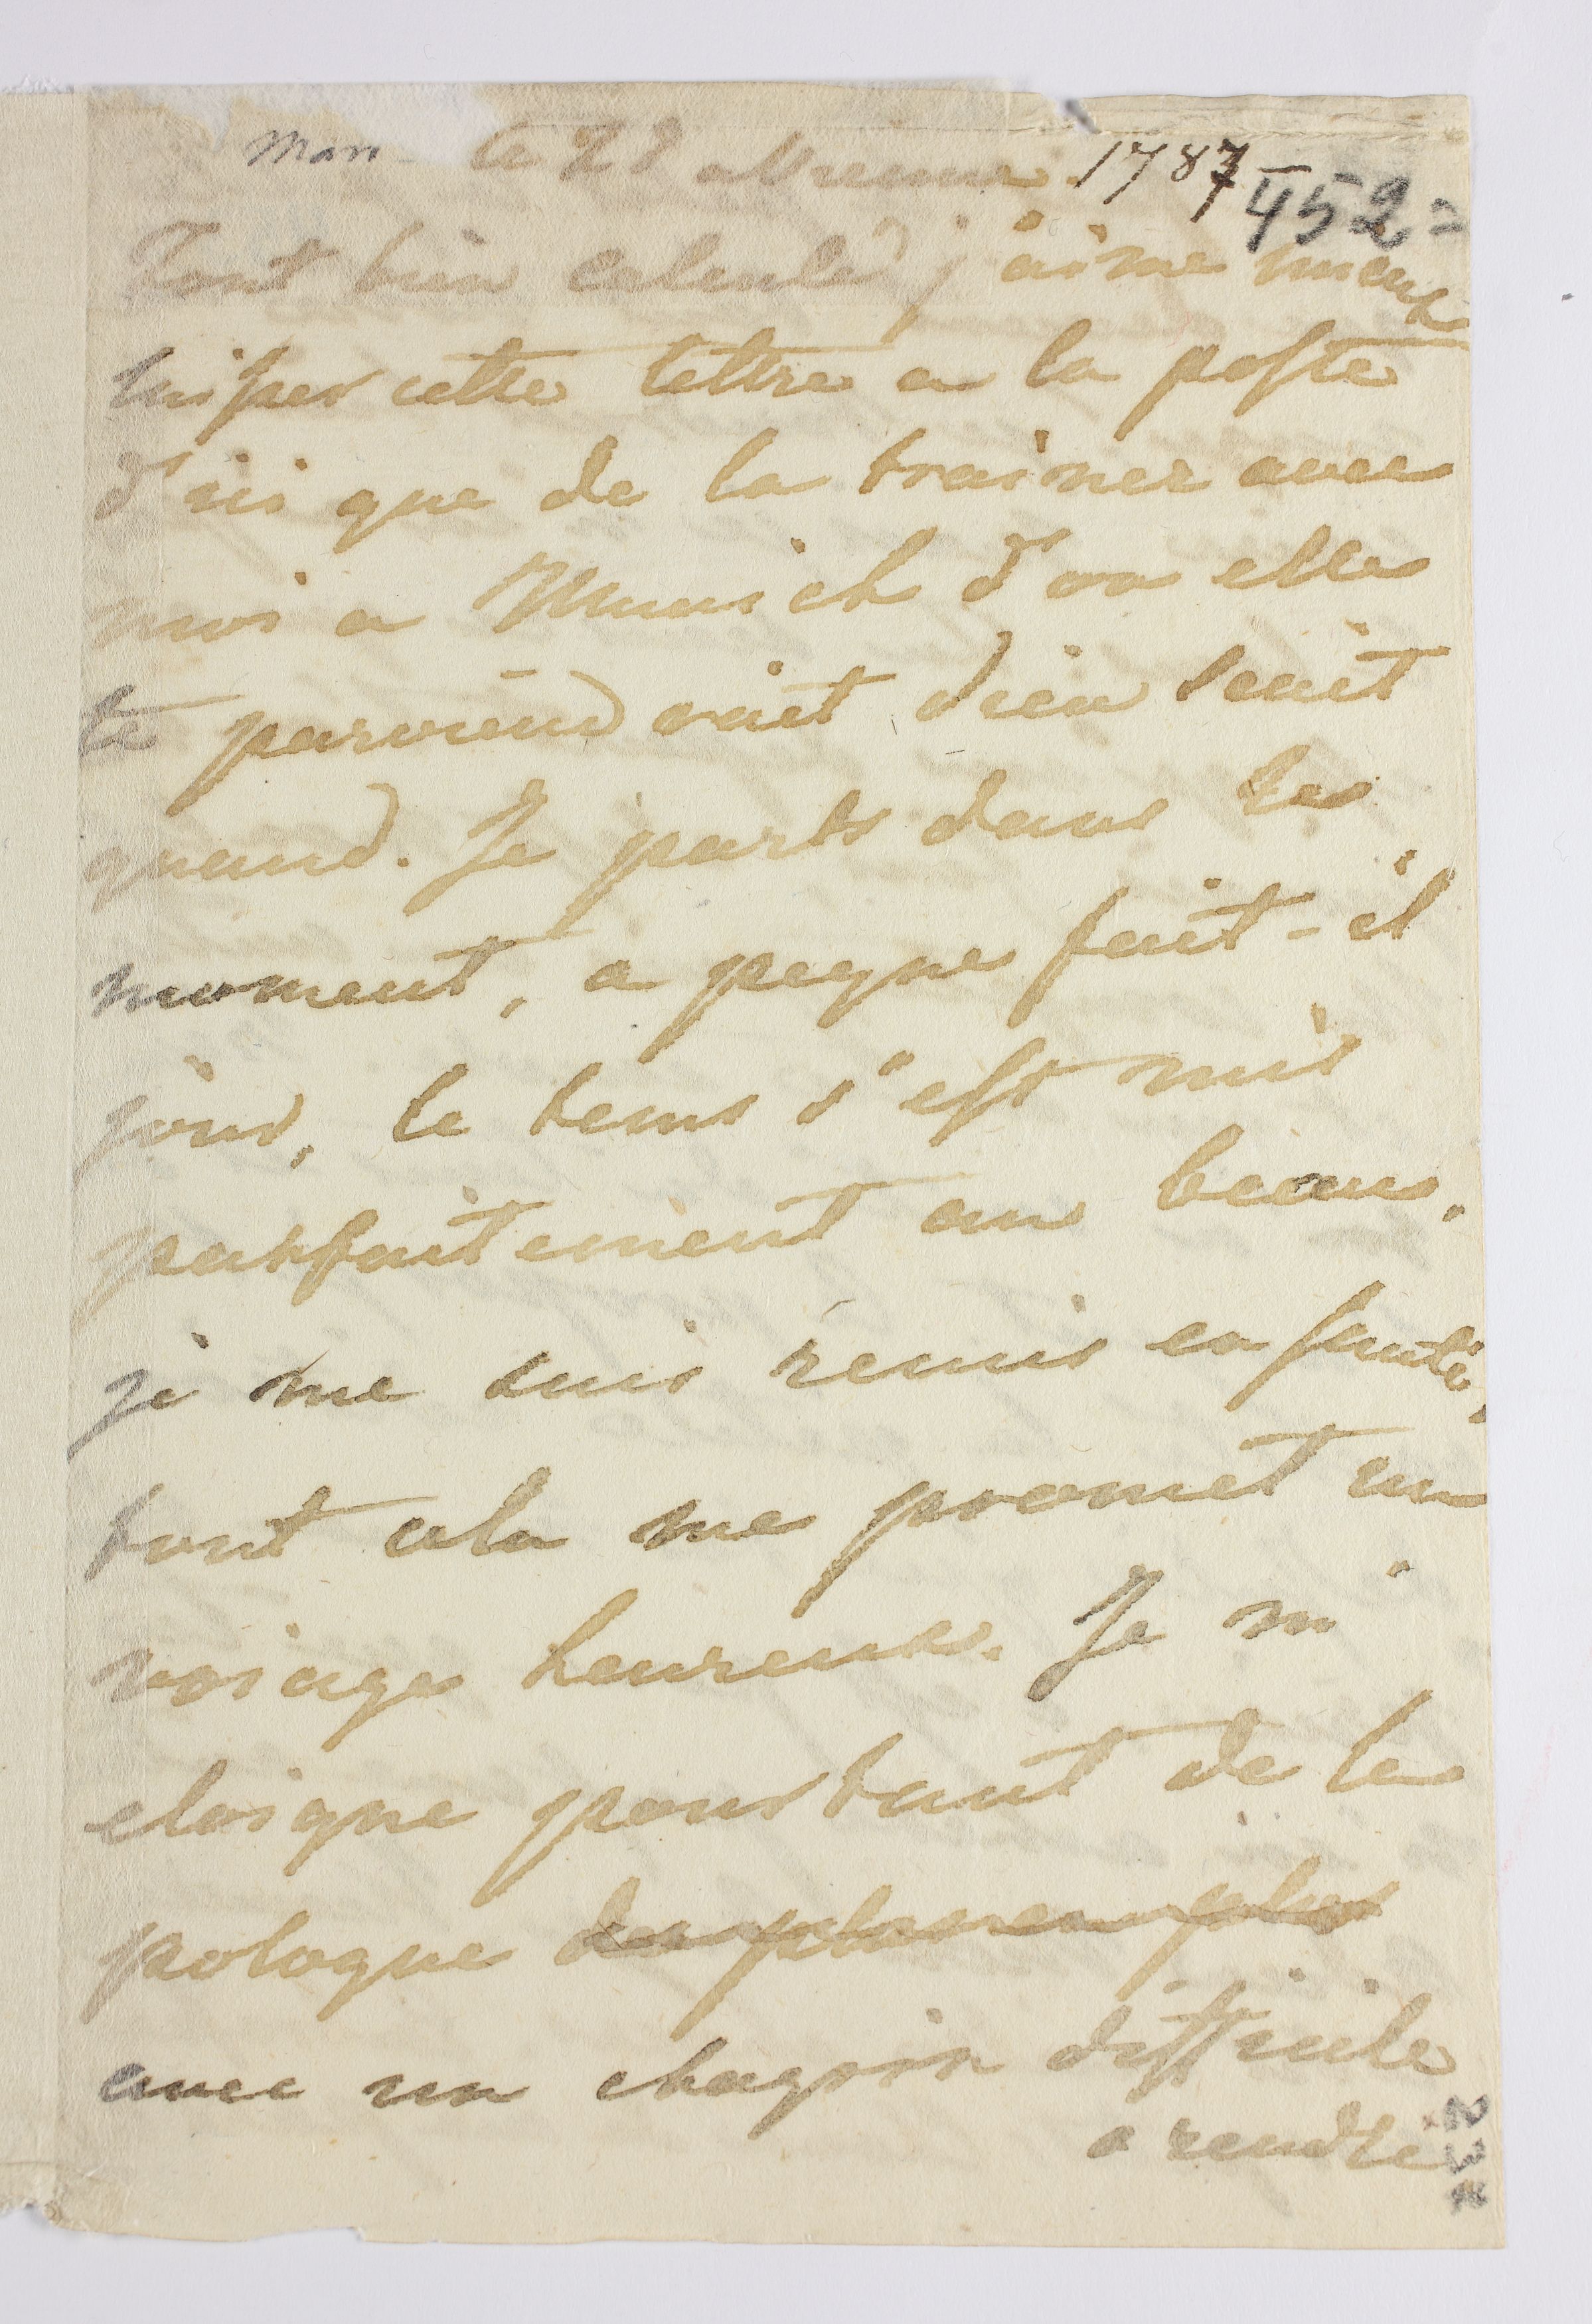 Mars le 28 a Vienne. 1787
452=
Tout bien calculé j'aime mieux
laisser cette lettre a la poste
d'ici que de la trainer avec
moi a Munich d'ou elle
te parviendrait dieu scait
quand. Je parts dans ce
moment, a peyne fait-il
jour, le tems s'est mis
parfaitement au beau,
je me suis remis en santé,
tout cela me promet un
voiage heureux. Je m'
eloigne pourtant de la
pologne
avec un chagrin difficile
a rendre